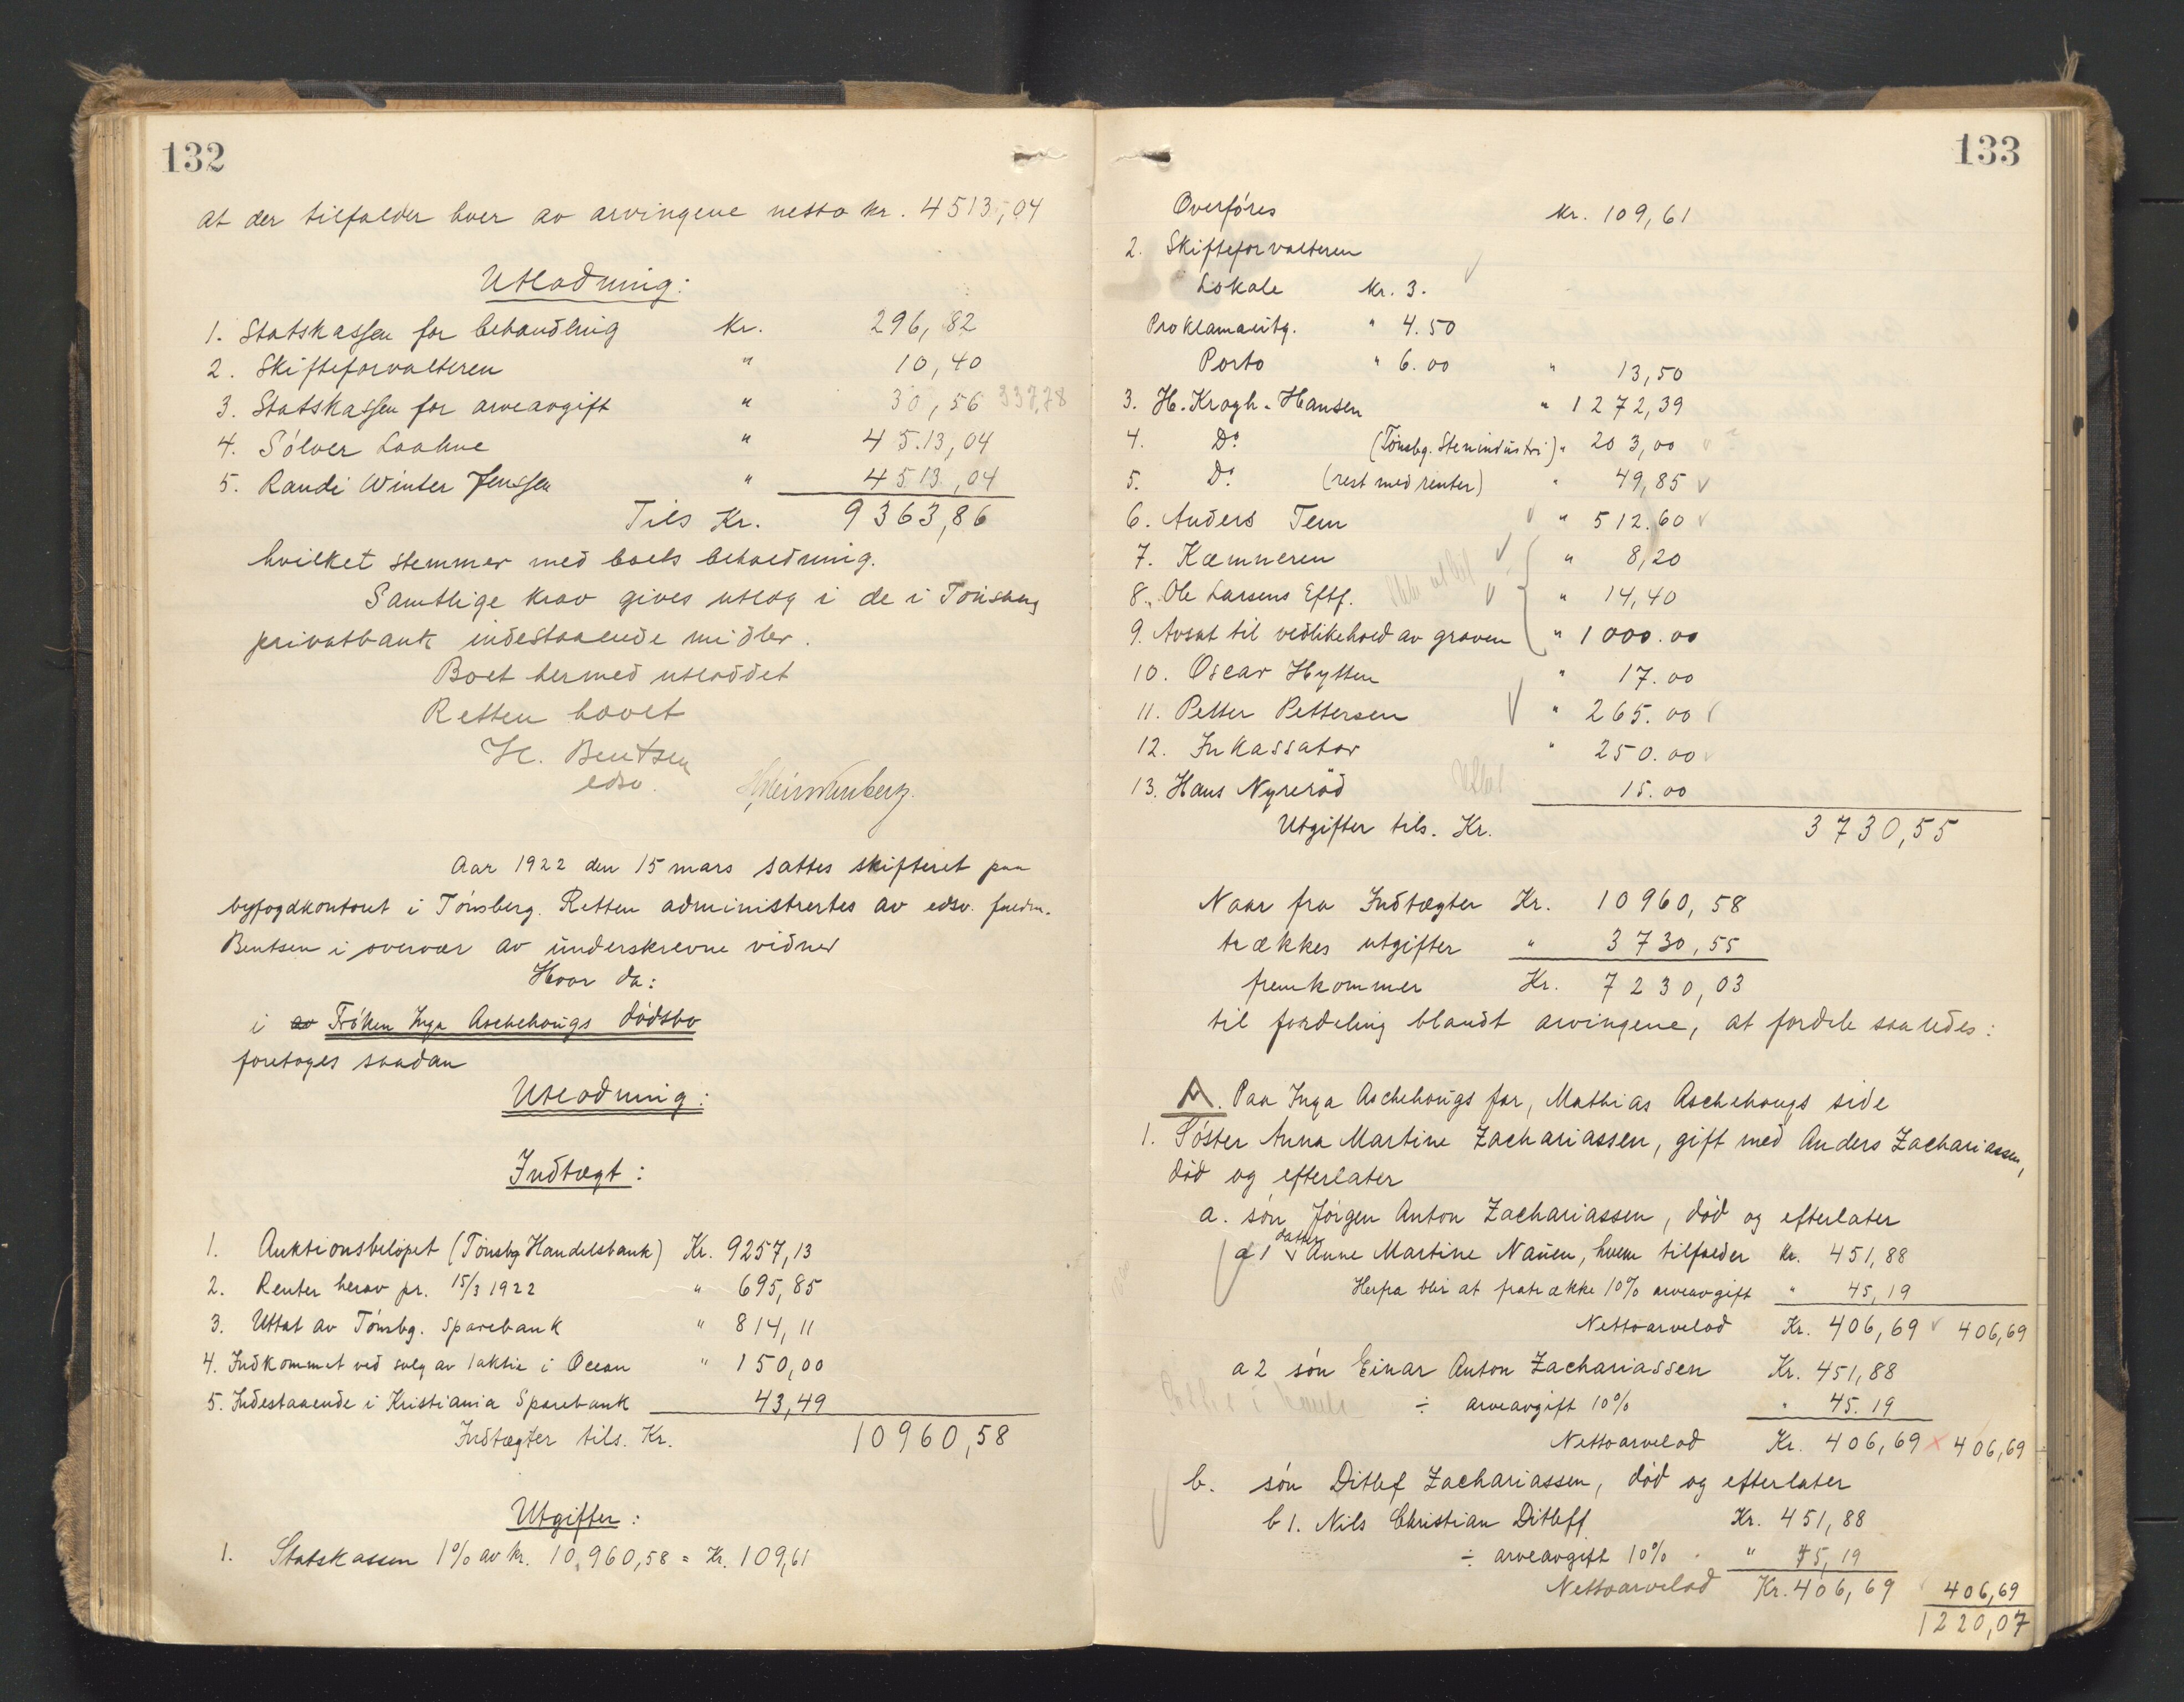 132
at der tilfalder hver av arvingene netto kr. 4513,04
Utlodning:
1. Statskassen for behandling Kr. 296,82
2. Skifteforvalteren " 10,40
3. Statskassen for arveavgift " 30,56 337,78
4. Sølver Laahne " 4513,04
5. Randi Winter Jenssen " 4513,04
Tils Kr. 9363,86
hvilket stemmer med boets beholdning.
Samtlige krav gives utlæg i de i Tønsberg
privatbank indestaaende midler.
Boet hermed utloddet
Retten hævet
H. Bentsen
edsv.
Aar 1922 den 15 mars sattes skifteret paa
byfogdkontoret i Tønsberg. Retten administrertes av edsv. fuldm.
Bentsen i overvær av underskrevne vidner
Hvor da:
i av Frøken Inga Aschehougs dødsbo
foretoges saadan
Utlodning:
Indtægt:
1. Auktionsbeløpet (Tønsbg Handelsbank) Kr. 9257,13
2. Renter herav pr. 15/3 1922 " 695,85
3. Uttat av Tønsbg. Sparebank " 814,11
4. Indkommet ved salg av 1 aktie i Ocean " 150,00
5. Indestaaende i Kristiania Sparebank 43,49
Indtægter tils. Kr. 10960,58
Utgifter:
1. Statskassen 1% av kr. 10.960,58 = Kr. 109,61
133
Overføres Kr. 109,61
2. Skifteforvalteren
Lokale Kr. 3.
Proklamautg. " 4.50
Porto " 6.00 " 13,50
3. H. Krogh-Hansen " 1272,39
4. Do (Tønsbg. Stenindustri) " 203,00
5. Do (rest med renter) " 49,85
6. Anders Tem " 512.60
7. Kæmneren " 8,20
8. Ole Larsens Eftf. " 14,40
9. Avsat til vedlikehold av graven " 1000.00
10. Oscar Hytten " 17.00
11. Petter Pettersen " 265.00
12. Inkassator " 250.00
13. Hans Nyrerød 15.00
Utgifter tils. Kr. 3730,55
Naar fra Indtægter Kr. 10960,58
trækkes utgifter " 3730,55
fremkommer Kr. 7230,03
til fordeling blandt arvingene, at fordele saaledes:
A. Paa Inga Aschehougs far, Mathias Aschehougs side
1. Søster Anna Martine Zachariassen, gift med Anders Zachariassen,
død og efterlater
a. søn Jørgen Anton Zachariassen, død og efterlater
a 1 datter Anne Martine Nauen, hvem tilfalder Kr. 451,88
Herfra blir at fratrække 10% arveavgift " 45,19
Nettoarvelod Kr. 406,69 406,69
a 2 søn Einar Anton Zachariassen Kr. 451,88
÷ arveavgift 10% " 45.19
Nettoarvelod Kr. 406,69 x 406,69
b. søn Ditlef Zachariassen, død og efterlater
b 1. Nils Christian Ditleff Kr. 451,88
÷ arveavgift 10% " 45,19
Nettoarvelod Kr. 406,69 406,69
1220,07